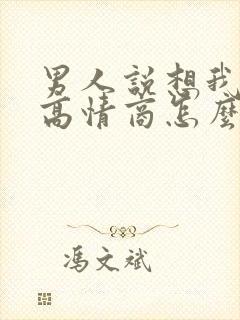 男人説想我
高情商怎麼
馮文斌